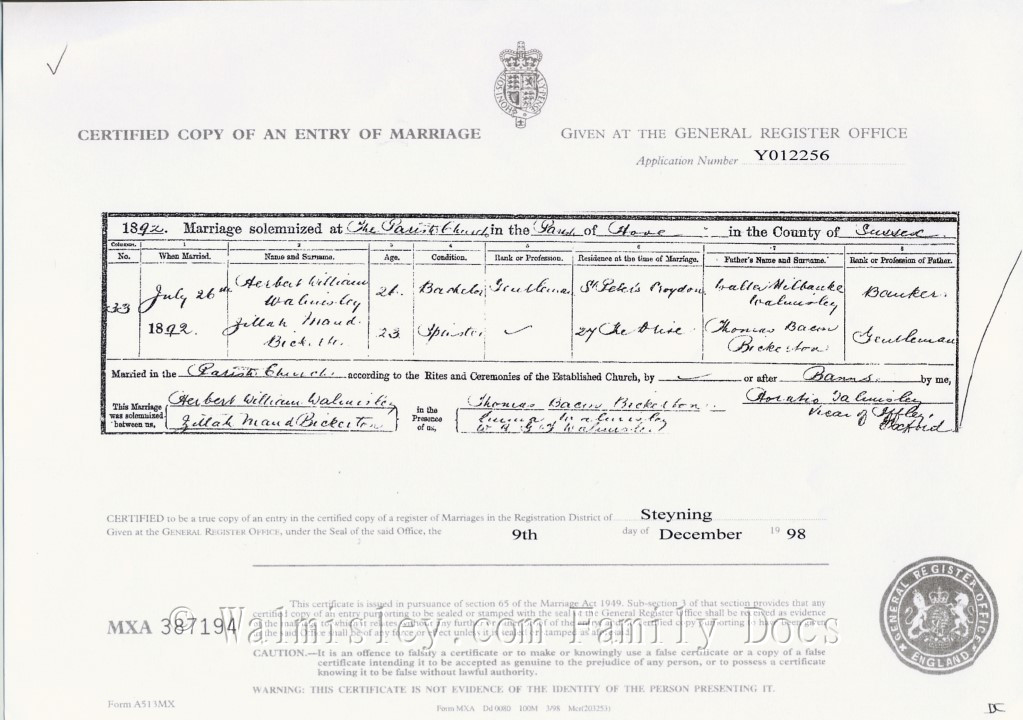 CERTIFIED COPY OF AN ENTRY OF MARRIAGE
GIVEN AT THE GENERAL REGISTER OFFICE
Application Number Y012256
1892. Marriage solemnized at The Parish Church in the Parish of Hove in the County of Sussex.
Columns. 1 2 3 4 5 6 7 8
No. When Married. Name and Surname. Age. Condition. Rank or Profession. Residence at the time of Marriage. Father's Name and Surname. Rank or Profession of Father.
33 July 26th 1892. Herbert William Walmisley 26 Bachelor Gentleman St Peter's Croydon Walmisley Banker.
Zillah Maud Bickerton 23 Spinster 27 The Drive Thomas Bacon Bickerton Gentleman
Married in the Parish Church according to the Rites and Ceremonies of the Established Church, by or after Banns by me,
This Marriage was solemnized between us,
Herbert William Walmisley
Zillah Maud Bickerton
in the Presence of us,
Thomas Bacon Bickerton
Walmisley
Horatio Walmisley
Vicar of Iffley, Oxford
CERTIFIED to be a true copy of an entry in the certified copy of a register of Marriages in the Registration District of Steyning
Given at the GENERAL REGISTER OFFICE, under the Seal of the said Office, the 9th day of December 1998
© Walmisley.com Family Docs
This certificate is issued in pursuance of section 65 of the Marriage Act 1949. Sub-section 3 of that section provides that any
MXA 387194
CAUTION.—It is an offence to falsify a certificate or to make or knowingly use a false certificate or a copy of a false
certificate intending it to be accepted as genuine to the prejudice of any person, or to possess a certificate
knowing it to be false without lawful authority.
WARNING: THIS CERTIFICATE IS NOT EVIDENCE OF THE IDENTITY OF THE PERSON PRESENTING IT.
GENERAL REGISTER OFFICE
ENGLAND
Form A513MX
Form MXA Dd 0080 100M 3/98 Mcr(203253)